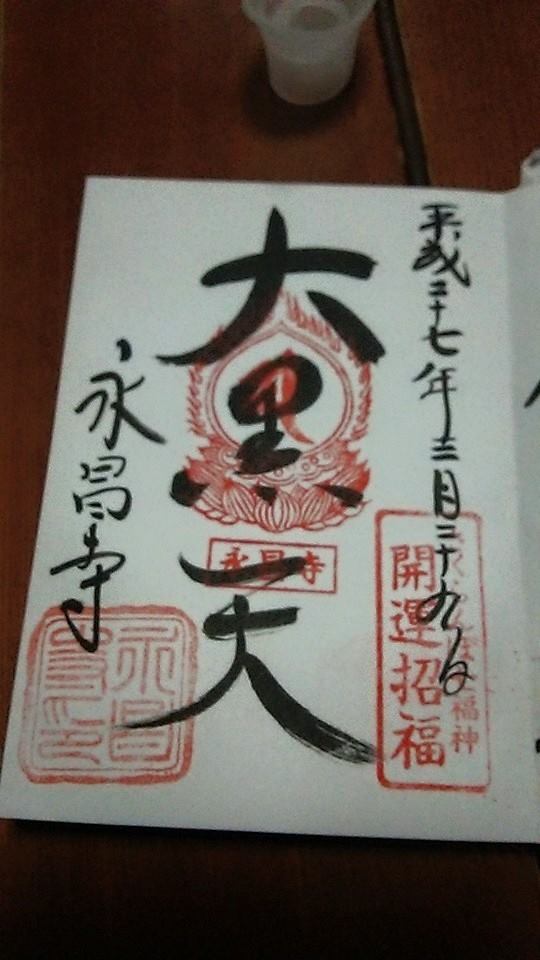 平成二十七年三月二十九日
福神
開運招福
大黒天
永昌寺
永昌寺